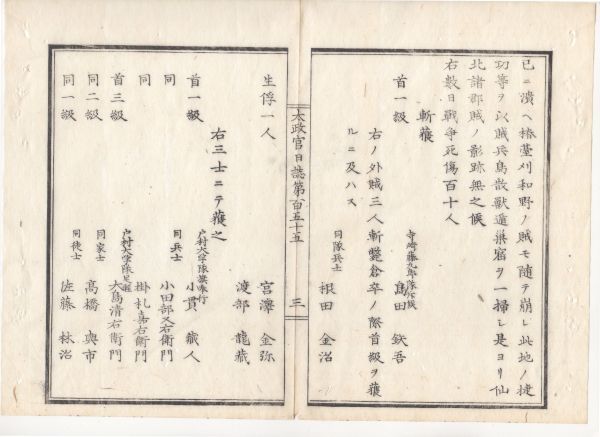 已ニ潰ヘ椿臺刈和野ノ賊モ随テ崩レ此地ノ捷
功等ヲ以賊兵鳥散獣遁巣窟ヲ一掃シ是ヨリ仙
北諸郡賊ノ影跡無之候
右數日戰争死傷百十人
斬獲
寺崎藤九郎隊
首一級 島田 鉄吾
右ノ外賊三人斬斃倉卒ノ際首級ヲ獲
ルニ及ハス
同隊兵士
根田 金治
太政官日誌第百五十五 三
生俘一人 宮澤 金弥
渡部 龍蔵
右三士ニテ獲之
戸村大學隊旗奉行
首一級 小貫 織人
同兵士
同 小田部又右衛門
同 掛札嘉右衛門
戸村大學隊足軽
首三級 大島清右衛門
同家士
同二級 高橋 與市
同徒士
同一級 佐藤 林治